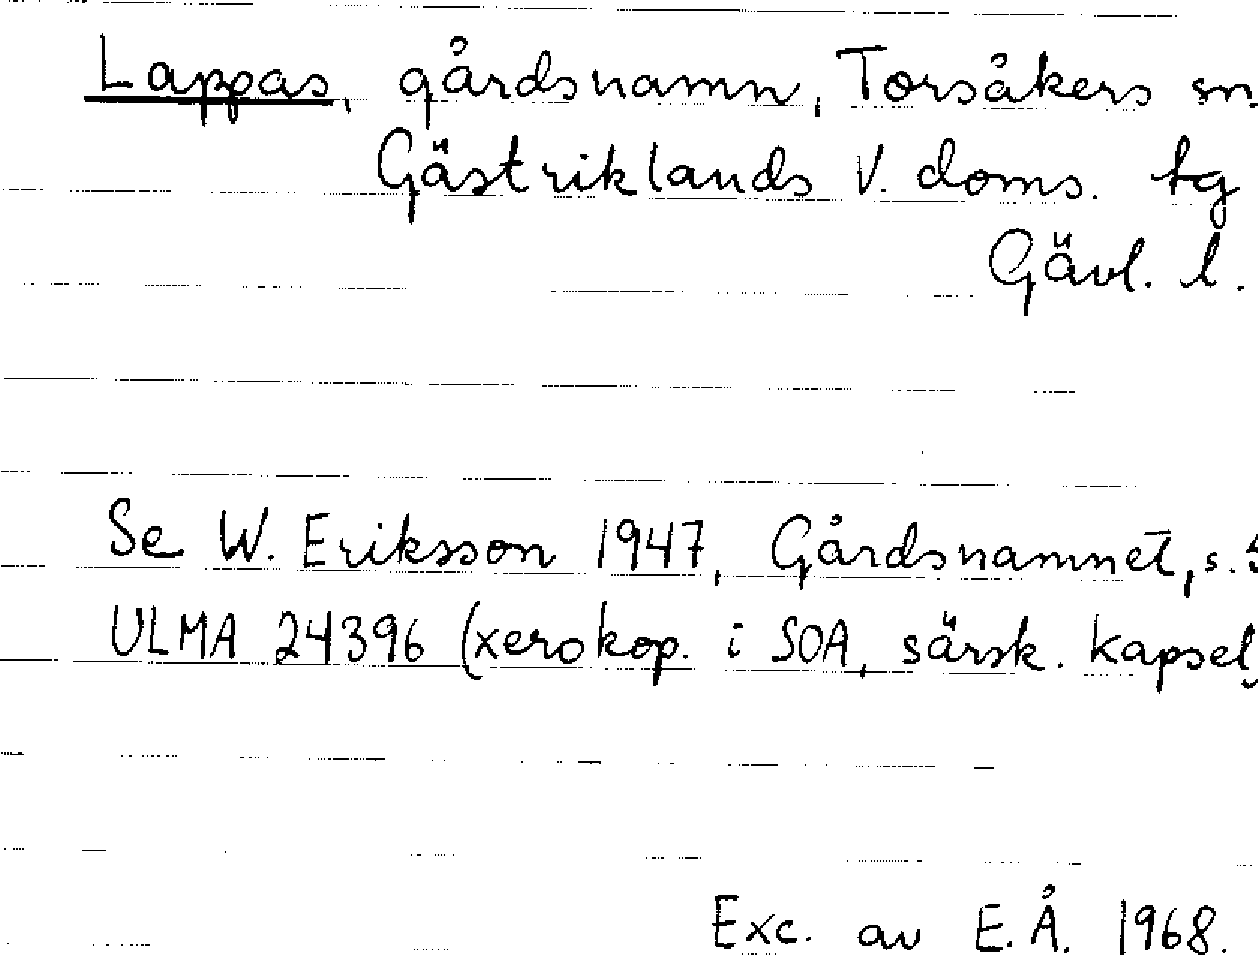 Lappas, gårdsnamn, Torsåkers sn.
Gästriklands V. doms. tg
Gävl. l.
Se W. Eriksson 1947, Gårdsnamnet, s. 5
ULMA 24396 (xerokop. i SOA, särsk. kapsel)
Exc. av E.Å. 1968.